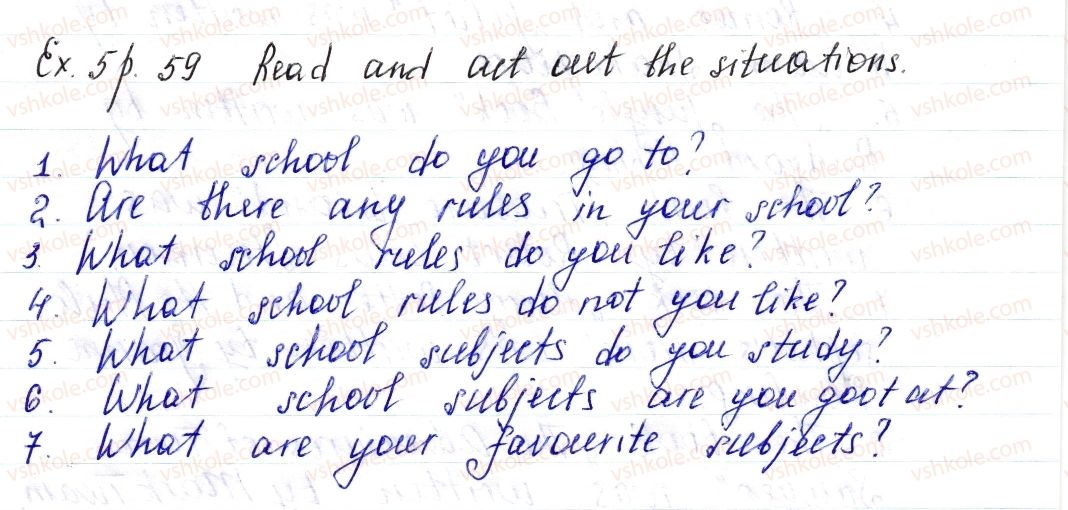 Ex. 5 p. 59 Read and act out the situations.
1. What school do you go to?
2. Are there any rules in your school?
3. What school rules do you like?
4. What school rules do not you like?
5. What school subjects do you study?
6. What school subjects are you goot at?
7. What are your favourite subjects?